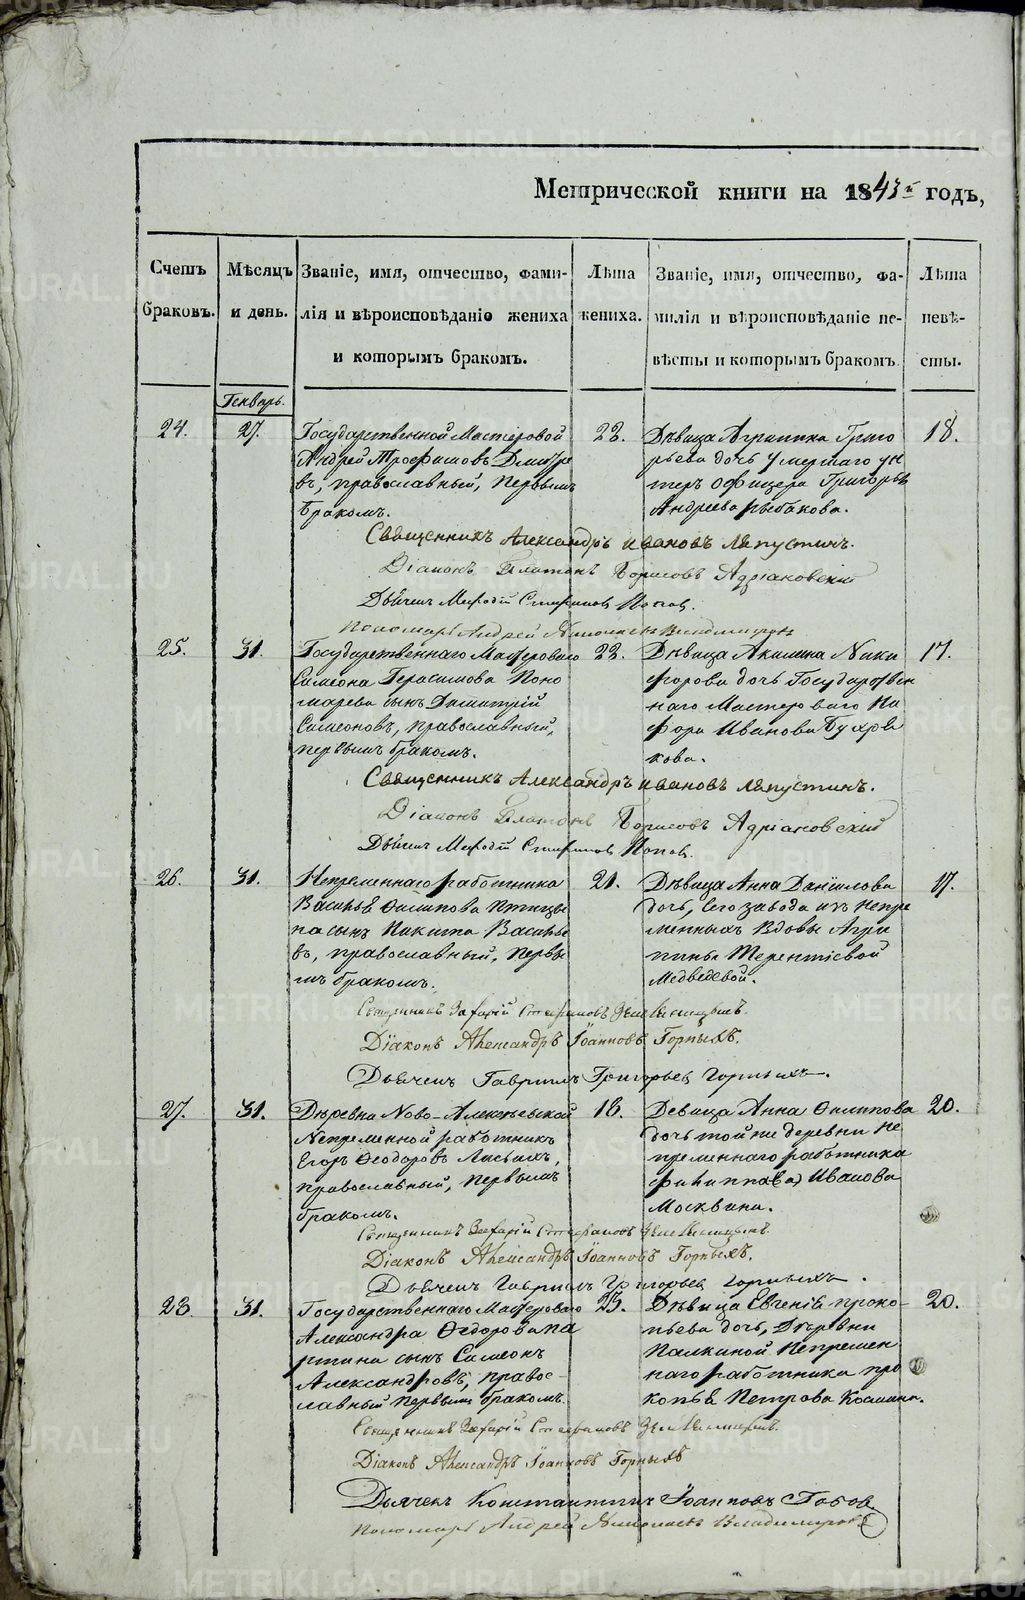 Метрической книги на 1843й годъ,
Счетъ браковъ.
Мѣсяцъ и день.
Званіе, имя, отчество, фами-
лія и вѣроисповѣданіе жениха
и которымъ бракомъ.
Лѣта
жениха.
Званіе, имя, отчество, фа-
милія и вѣроисповѣданіе не-
вѣсты и которымъ бракомъ.
Лѣта
невѣ-
сты.
Генварь.
24. 27. Государственной Мастеровой
Андрей Трофимовъ Дмитре
въ, православный, первымъ
бракомъ.
22.
Дѣвица Агрипина Григо
рьева дочь умершаго ун
теръ офицера Григорья
Андреева Рыбакова.
18.
Священникъ Александръ Ивановъ Ляпустинъ.
Діаконъ Платонъ Борисовъ Адріановскій
Дьячекъ Мефодій Попов.
Пономарь Андрей Владимировъ
25. 31. Государственнаго Мастероваго
Симеона Герасимова Поно
марева сынъ Димитрій
Симеоновъ, православный,
первымъ бракомъ.
22.
Дѣвица Акилина Ники
форова дочь Государствен
наго Мастероваго Ни
фора Иванова
кова.
17.
Священникъ Александръ Ивановъ Ляпустинъ.
Діаконъ Платонъ Борисовъ Адріановскій
Дьячекъ Мефодій Попов.
26. 31. Непременнаго работника
Василья Филипова Птицы
на сынъ Никита Василье
въ, православный, первы
мъ бракомъ.
21.
Дѣвица Анна Даніилова
дочь, сего завода изъ непре
менныхъ Вдовы Агри
пины Терентіевой
Медведевой.
17.
Священникъ Захарій Стефановъ
Діаконъ Александръ Іоанновъ Горныхъ.
Дьячекъ Гавриилъ Григорьев Горныхъ.
27. 31. Деревни Ново-Алексѣевской
Непременной работникъ
Егоръ Феодоровъ Лисьихъ,
православный, первымъ
бракомъ.
18.
Девица Анна Филипова
дочь той же деревни не
пременнаго работника
Филиппа(ва) Иванова
Москвина.
20.
Священникъ Захарій Стефановъ
Діаконъ Александръ Іоанновъ Горныхъ.
Дьячекъ Гавриилъ Григорьев Горныхъ.
28. 31. Государственнаго Мастероваго
Александра Федорова Па
ртина сынъ Симеонъ
Александровъ, правос-
лавный первымъ бракомъ.
23.
Дѣвица Евгенія Проко-
пьева дочь, Деревни
Палкиной Непремен
наго работника Про
копья Петрова
20.
Священникъ Захарій Стефановъ
Діаконъ Александръ Іоанновъ Горныхъ
Дьячекъ Константинъ Іоанновъ Попов
Пономарь Андрей Владимировъ
METRIKI.GASO-URAL.RU